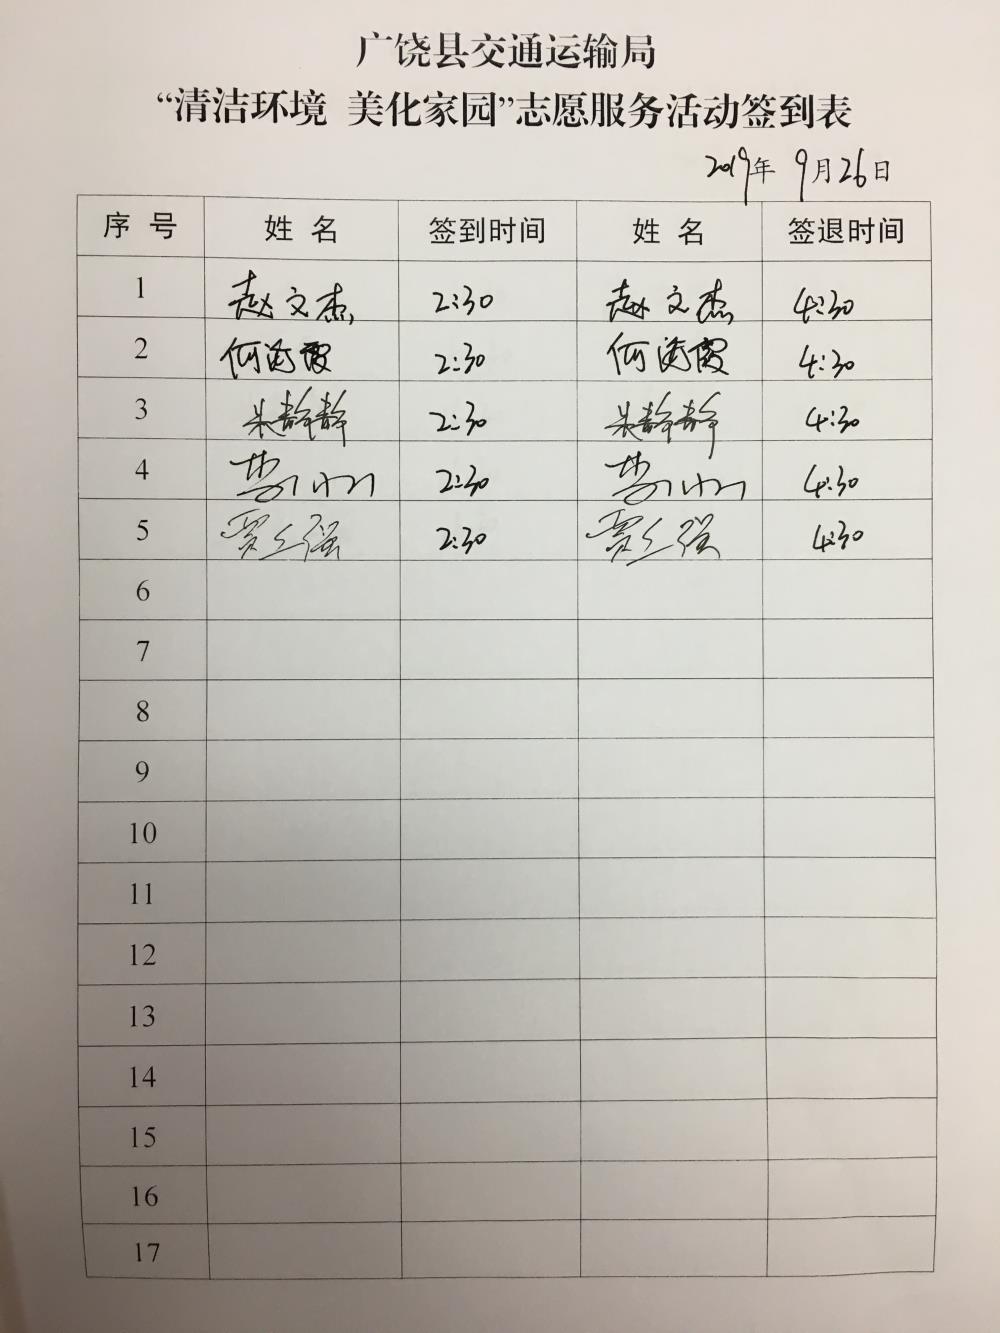 广饶县交通运输局
“清洁环境 美化家园”志愿服务活动签到表
2019年 9月26日
序 号 姓 名 签到时间 姓 名 签退时间
1 赵文杰 2:30 赵文杰 4:30
2 何 霞 2:30 何 霞 4:30
3 朱静静 2:30 朱静静 4:30
4 2:30 4:30
5 贾 强 2:30 贾 强 4:30
6
7
8
9
10
11
12
13
14
15
16
17